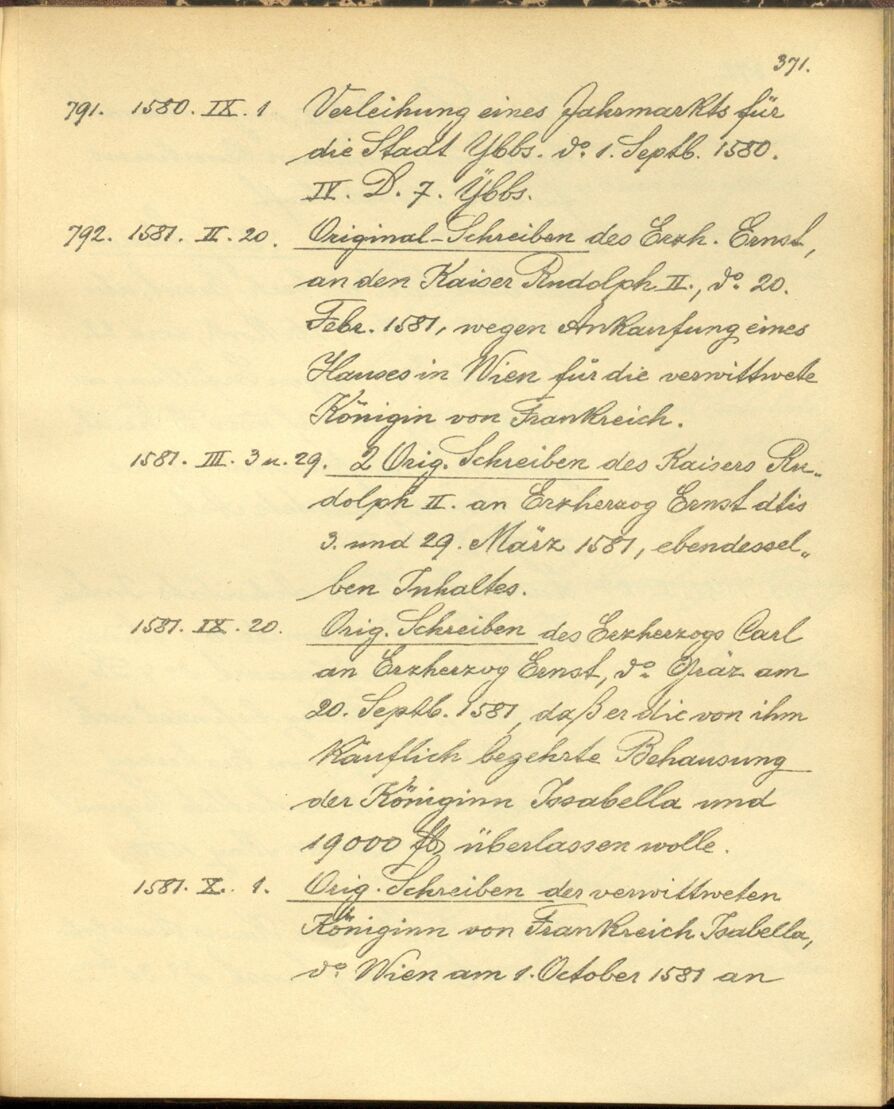 371.
791. 1580. IX. 1 Verleihung eines Jahrmarkts für
die Stadt Ybbs. do. 1. Septb. 1580.
IV. D. 7. Ybbs.
792. 1581. II. 20. Original-Schreiben des Erzh. Ernst,
an den Kaiser Rudolph II., do. 20.
Febr. 1581, wegen Ankaufung eines
Hauses in Wien für die verwittwete
Königin von Frankreich.
1581. III. 3 u. 29. 2 Orig. Schreiben des Kaisers Ru„
dolph II. an Erzherzog Ernst dtis
3. und 29. März 1581, ebendessel„
ben Inhaltes.
1581. IX. 20. Orig. Schreiben des Erzherzogs Carl
an Erzherzog Ernst, do. Gräz am
20. Septb. 1581, daß er die von ihm
käuflich begehrte Behausung
der Königinn Issabella und
19000 fl überlassen wolle.
1581. X. 1. Orig. Schreiben der verwittweten
Königinn von Frankreich Isabella,
do. Wien am 1. October 1581 an